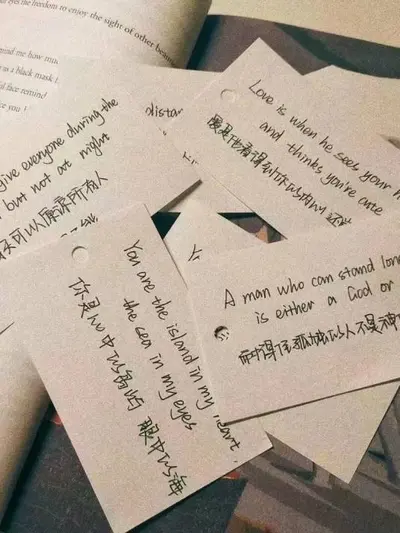 the freedom to enjoy the sight of other beau
me how muc
as a black mask
face remind
you
give everyone during the
but not at night
可以原谅所有人
distan
Love is when he sees your
and thinks you're cute
爱是他看得到你的
You are the island in my heart,
the sea in my eyes
你是心中的岛屿 眼中的海
A man who can stand lone
is either a God or
耐得住孤独的人不是神